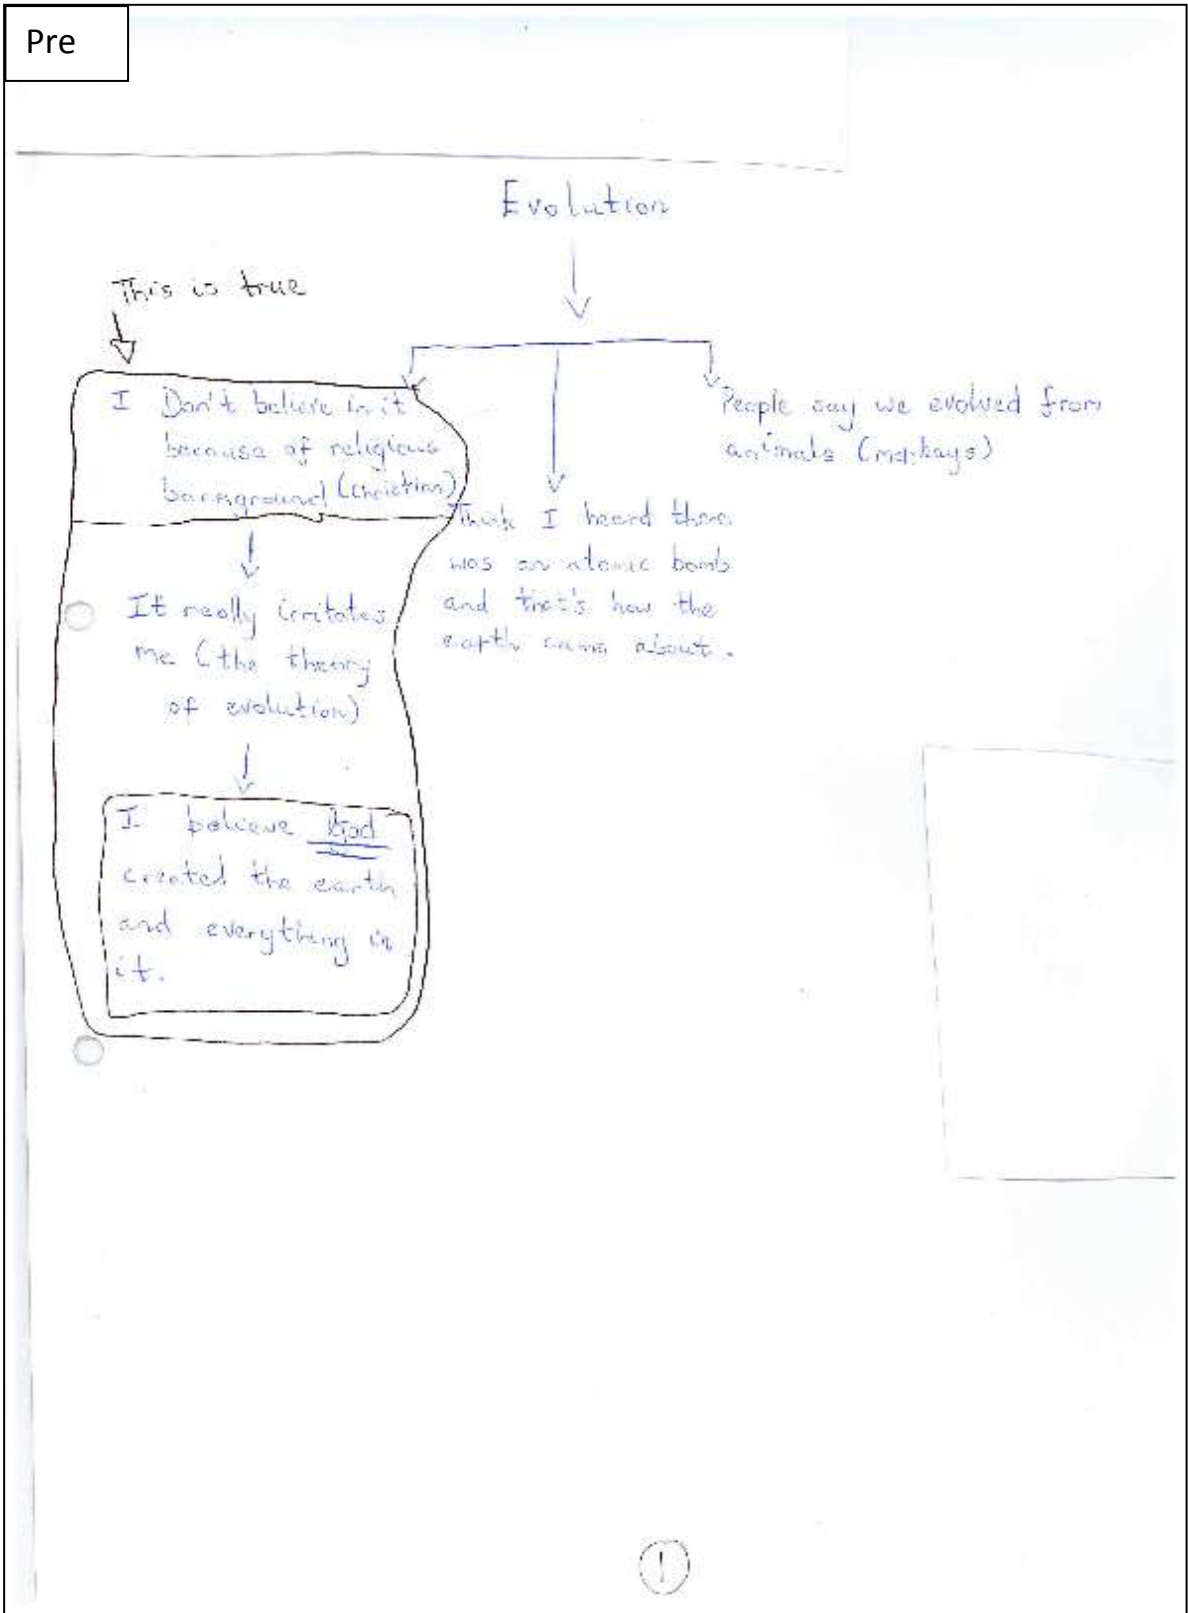 Pre
Evolution
This is true
I Don't believe in it
because of religious
background (Christian)
It really irritates
me (the theory
of evolution)
I believe God
created the earth
and everything in
it.
Think I heard there
was an atomic bomb
and that's how the
earth came about.
People say we evolved from
animals (monkays)
1